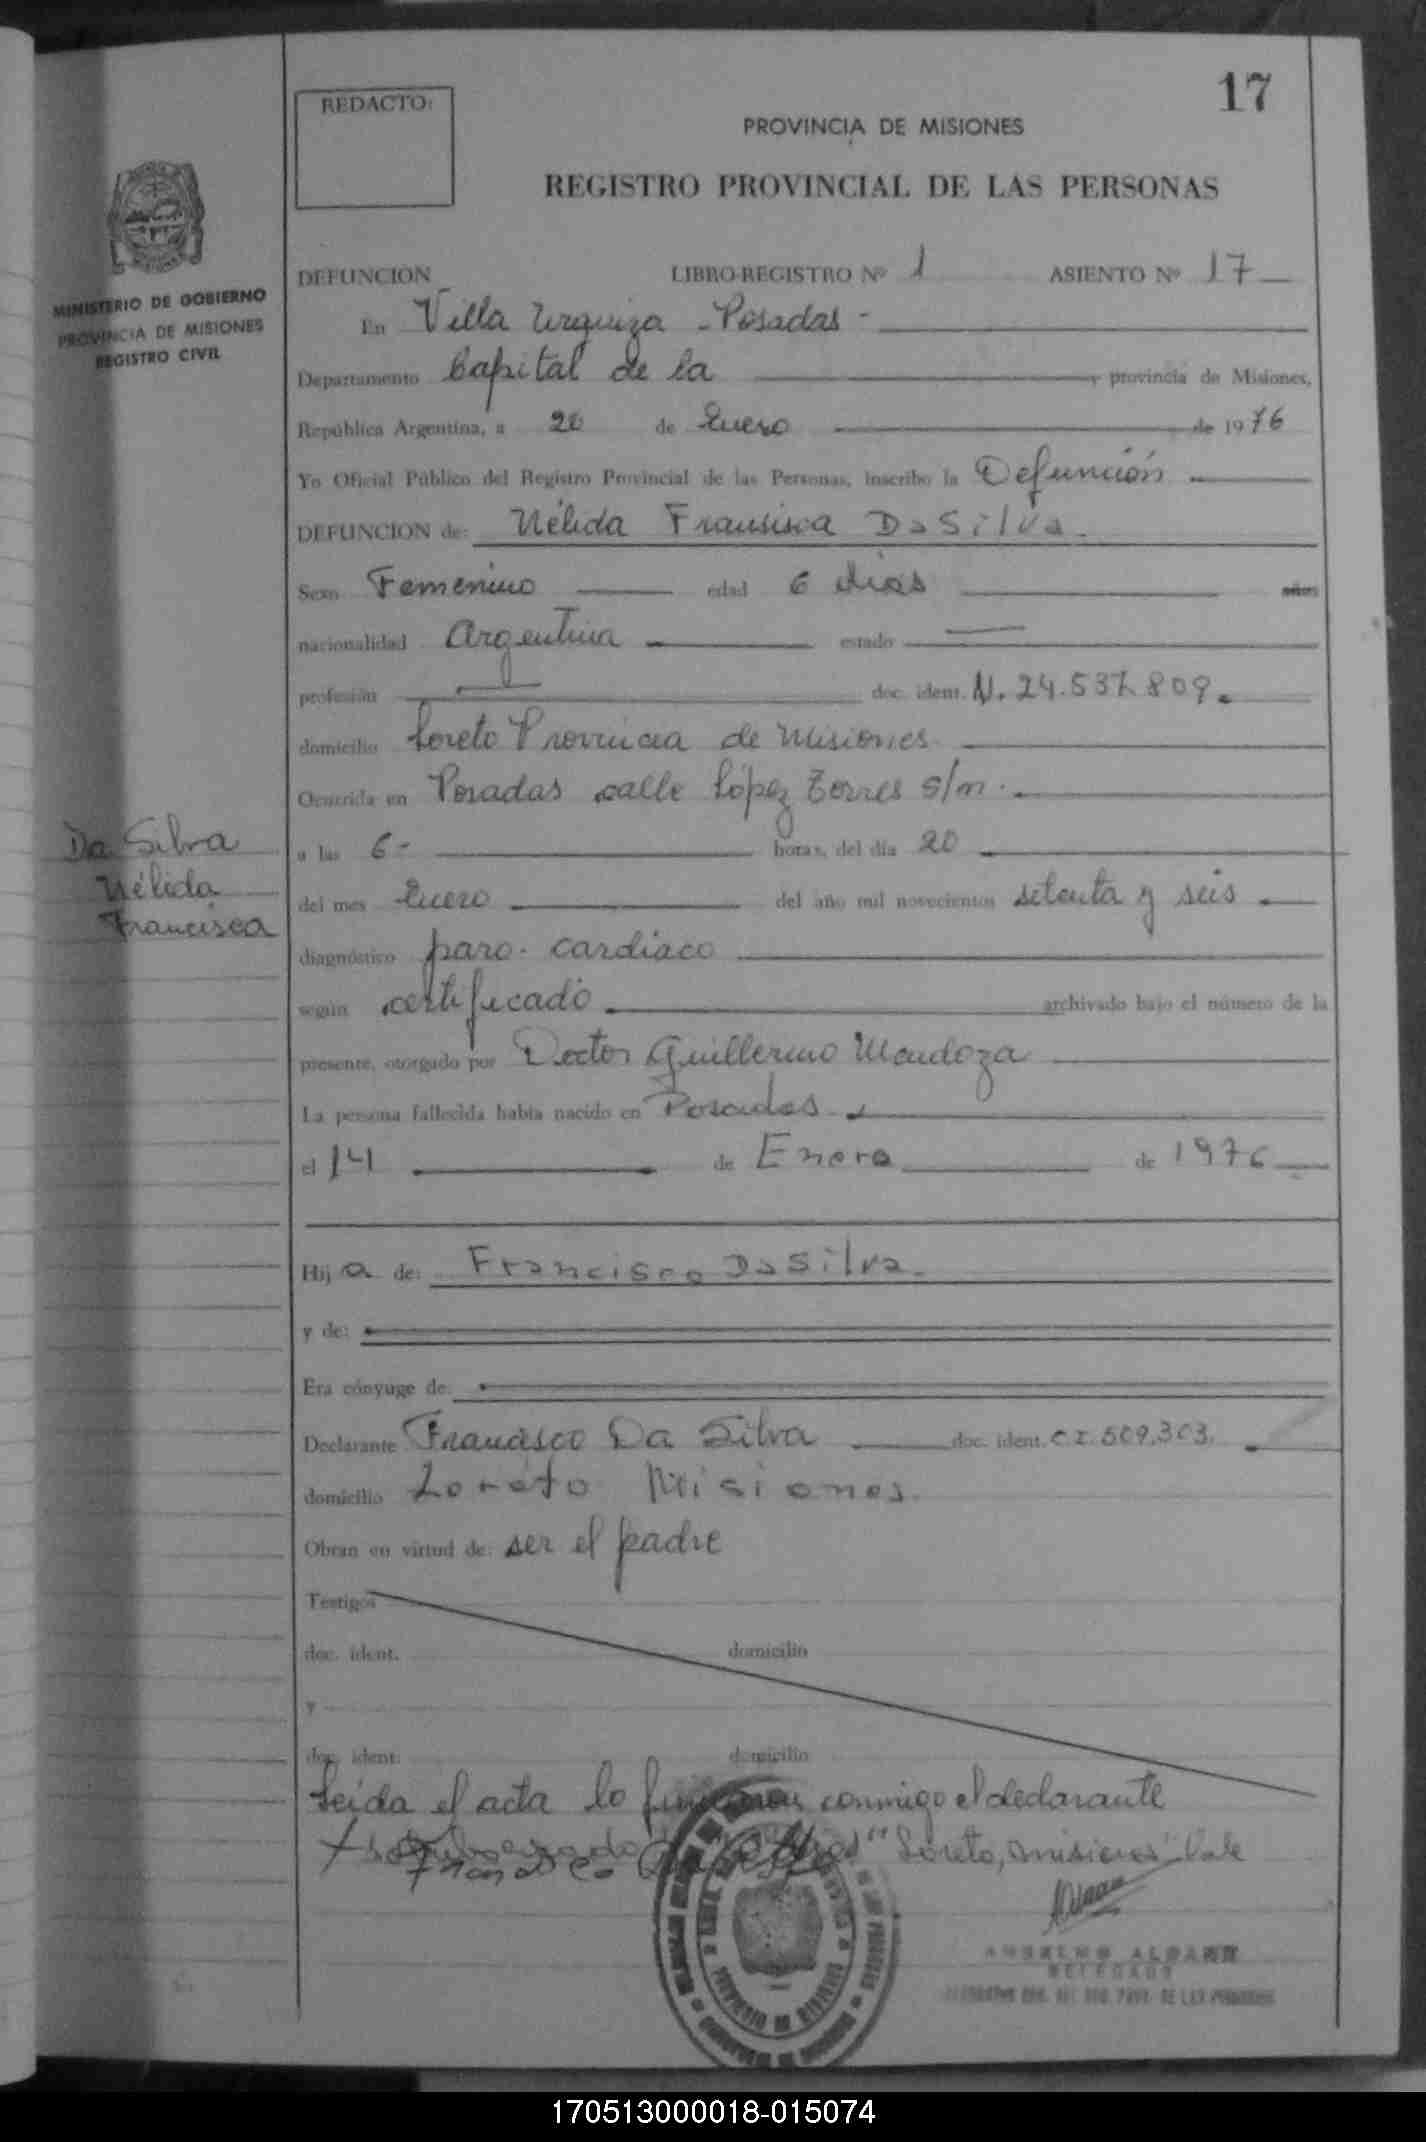 17
REDACTO:
PROVINCIA DE MISIONES
REGISTRO PROVINCIAL DE LAS PERSONAS
MINISTERIO DE GOBIERNO
PROVINCIA DE MISIONES
REGISTRO CIVIL
DEFUNCION LIBRO-REGISTRO Nº 1 ASIENTO Nº 17
En Villa Urquiza - Posadas -
Departamento Capital de la provincia de Misiones,
República Argentina, a 20 de Enero de 1976
Yo Oficial Público del Registro Provincial de las Personas, inscribo la Defunción
DEFUNCION de: Nélida Francisca Da Silva.
Sexo Femenino edad 6 días años
nacionalidad Argentina estado —
profesión — doc. ident. N. 24.537.809.
domicilio Loreto Provincia de Misiones.
Ocurrida en Posadas calle López Torres s/n.
a las 6- horas, del día 20
del mes Enero del año mil novecientos setenta y seis
diagnóstico paro-cardiaco
según certificado archivado bajo el número de la
presente, otorgado por Doctor Guillermo Mendoza
La persona fallecida había nacido en Posadas.
el 14 de Enero de 1976
Hij a de: Francisco Da Silva.
y de:
Era cónyuge de:
Declarante Francisco Da Silva doc. ident. C.I. 509.303.
domicilio Loreto Misiones.
Obran en virtud de: ser el padre
Testigos
doc. ident. domicilio
y
doc. ident. domicilio
Leída el acta lo conmigo el declarante
"Loreto, Misiones" Vale
Francisco
DELEGADO
Da Silva
Nélida
Francisca
170513000018-015074